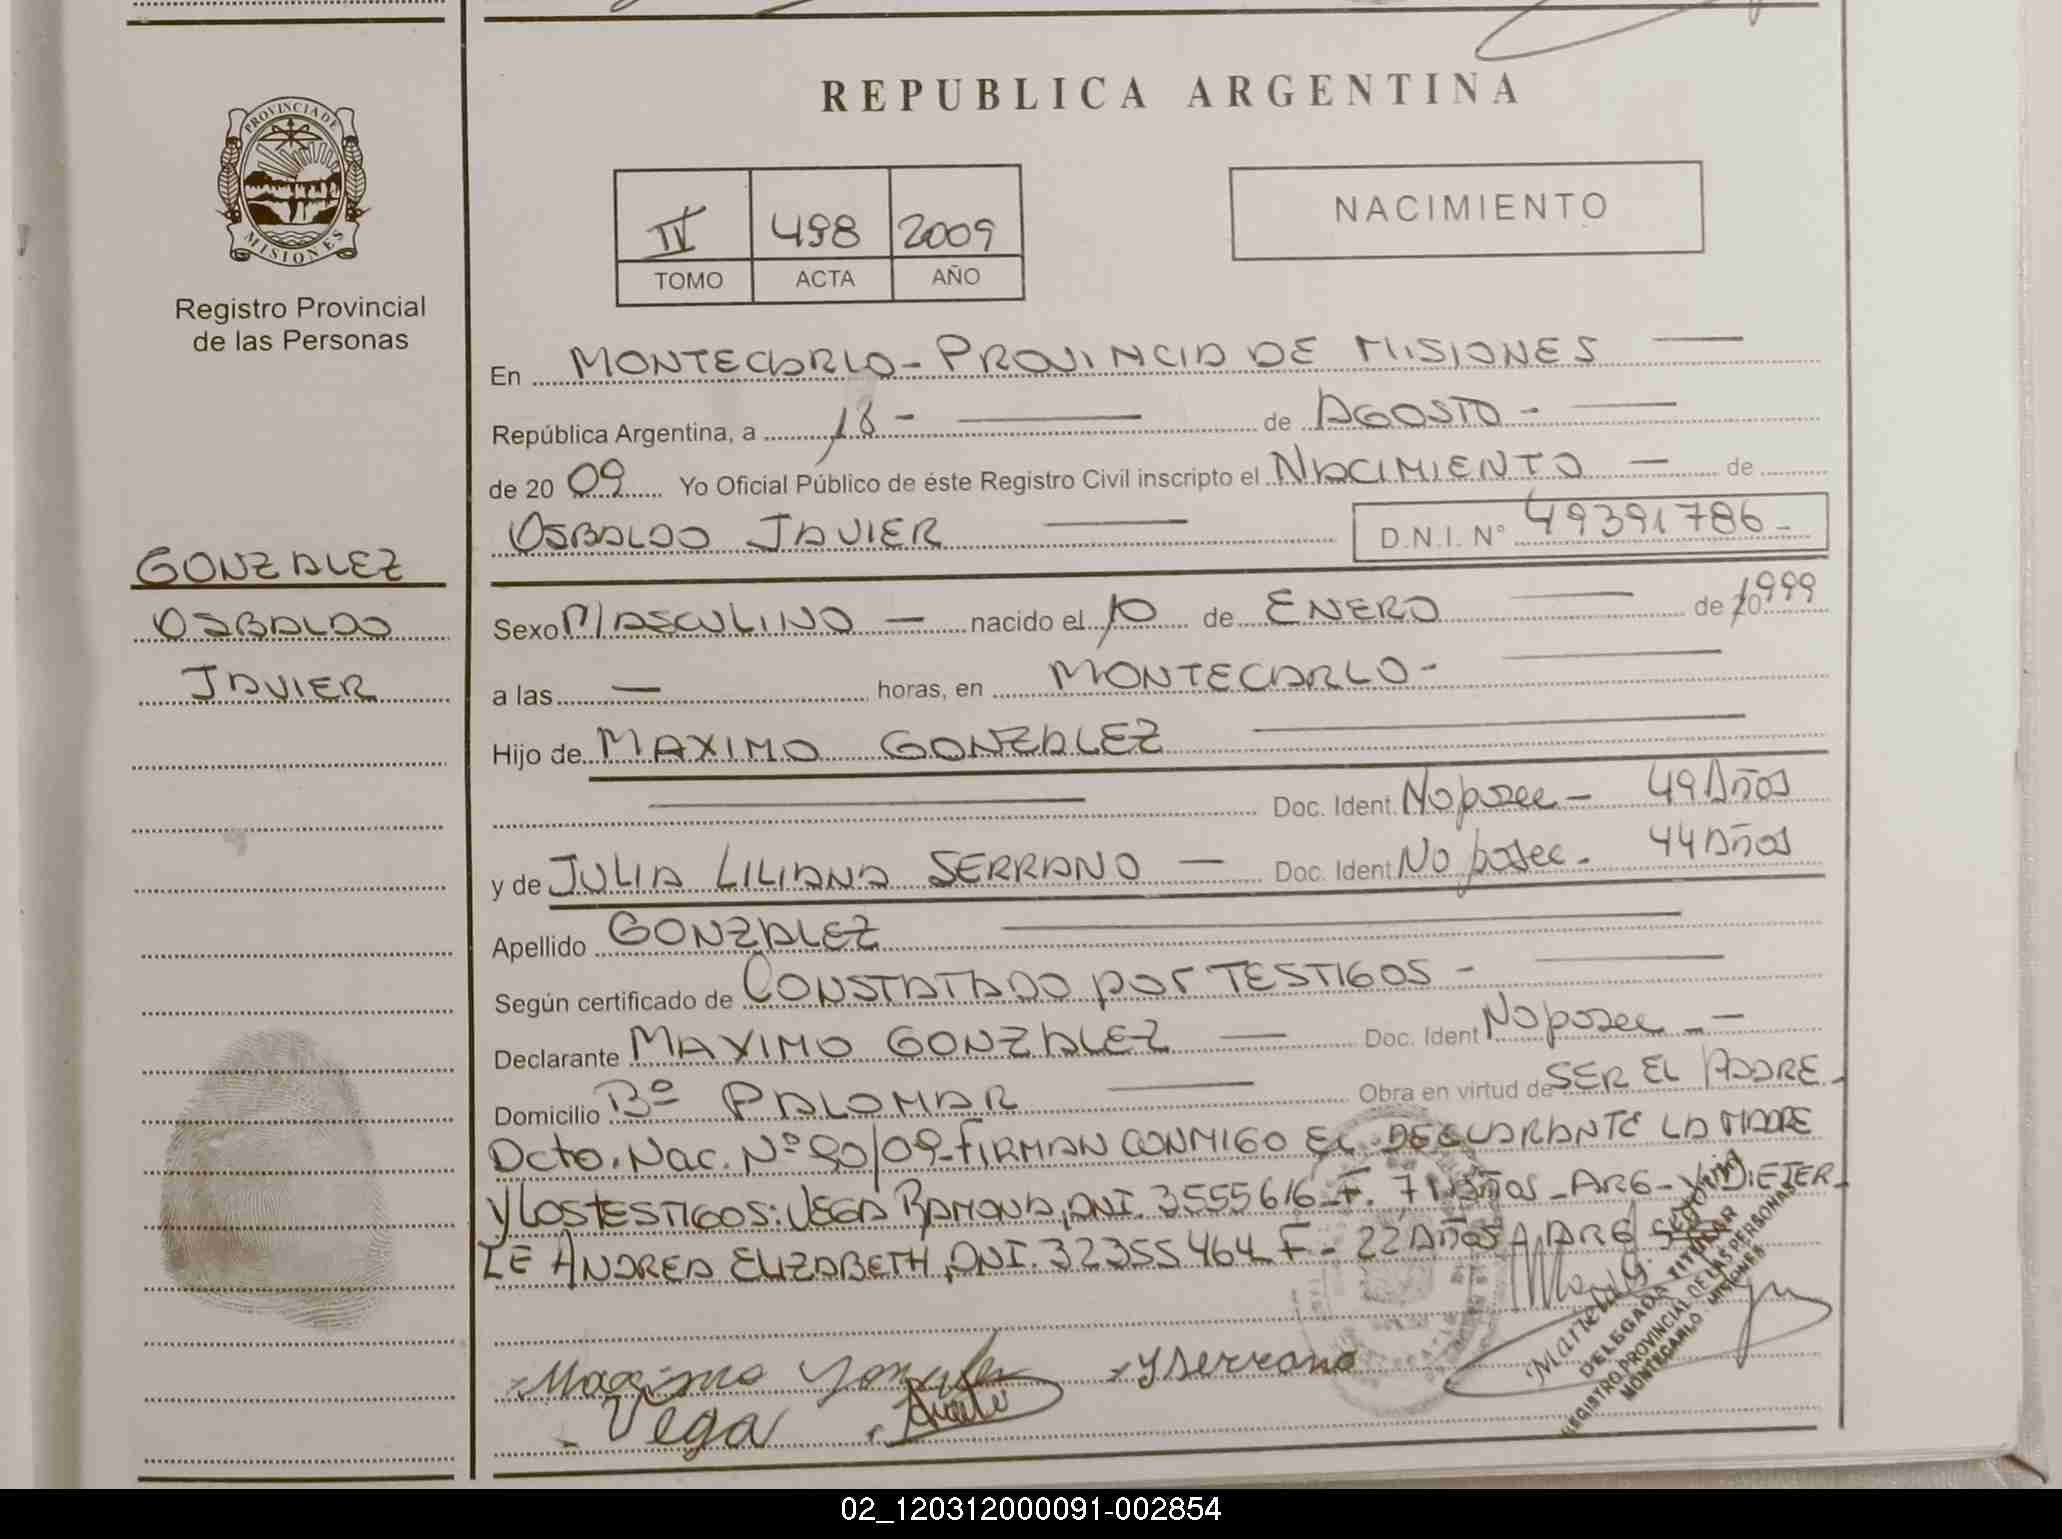 PROVINCIA DE
MISIONES
Registro Provincial
de las Personas
GONZALEZ
OSBALDO
JAVIER
REPUBLICA ARGENTINA
IV 498 2009
TOMO ACTA AÑO
NACIMIENTO
En MONTECARLO - PROVINCIA DE MISIONES
República Argentina, a 18 - de AGOSTO -
de 20 09 Yo Oficial Público de éste Registro Civil inscripto el NACIMIENTO - de
OSBALDO JAVIER D.N.I. N° 49391786 -
Sexo MASCULINO - nacido el 10 de ENERO de 1999
a las - horas, en MONTECARLO -
Hijo de MAXIMO GONZALEZ
Doc. Ident. No posee - 49 Años
y de JULIA LILIANA SERRANO - Doc. Ident No posee - 44 Años
Apellido GONZALEZ
Según certificado de CONSTATADO POR TESTIGOS -
Declarante MAXIMO GONZALEZ - Doc. Ident No posee - -
Domicilio Bº PALOMAR Obra en virtud de SER EL PADRE -
Dcto. Nac. Nº 90/09 - FIRMAN CONMIGO EL DECLARANTE LA MADRE
Y LOS TESTIGOS: VEGA RAMONA, DNI. 3555616 F. 71 Años - ARG - Y DIETER-
LE ANDREA ELIZABETH, DNI. 32355464 F - 22 Años ARG
Maximo Gonzalez - J Serrano
- Vega
DELEGADA TITULAR
REGISTRO PROVINCIAL DE LAS PERSONAS
MONTECARLO - MISIONES
02_120312000091-002854